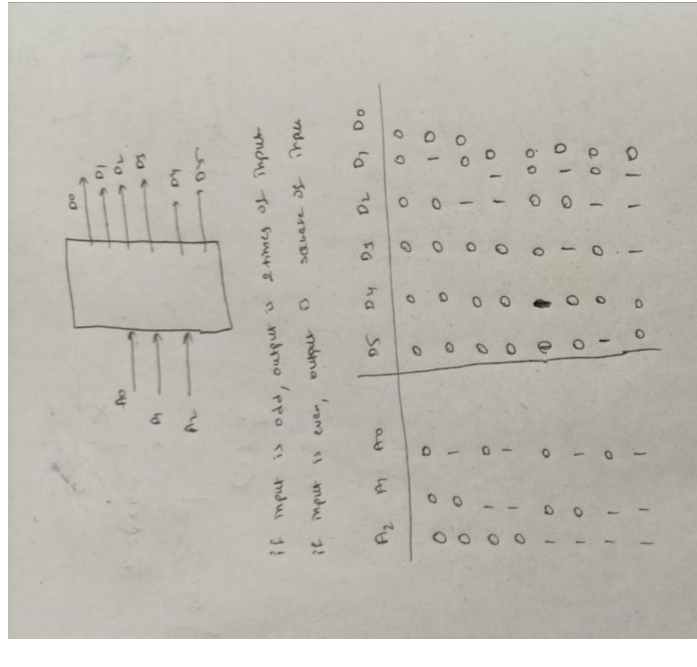 A0
A1
A2
D0
D1
D2
D3
D4
D5
if input is odd, output is 2 times of input
if input is even, output is square of input
A2 A1 A0 D5 D4 D3 D2 D1 D0
0 0 0 0 0 0 0 0 0
0 0 1 0 0 0 0 1 0
0 1 0 0 0 0 1 0 0
0 1 1 0 0 0 1 1 0
1 0 0 0 1 0 0 0 0
1 0 1 0 0 1 0 1 0
1 1 0 1 0 0 1 0 0
1 1 1 0 0 1 1 1 0